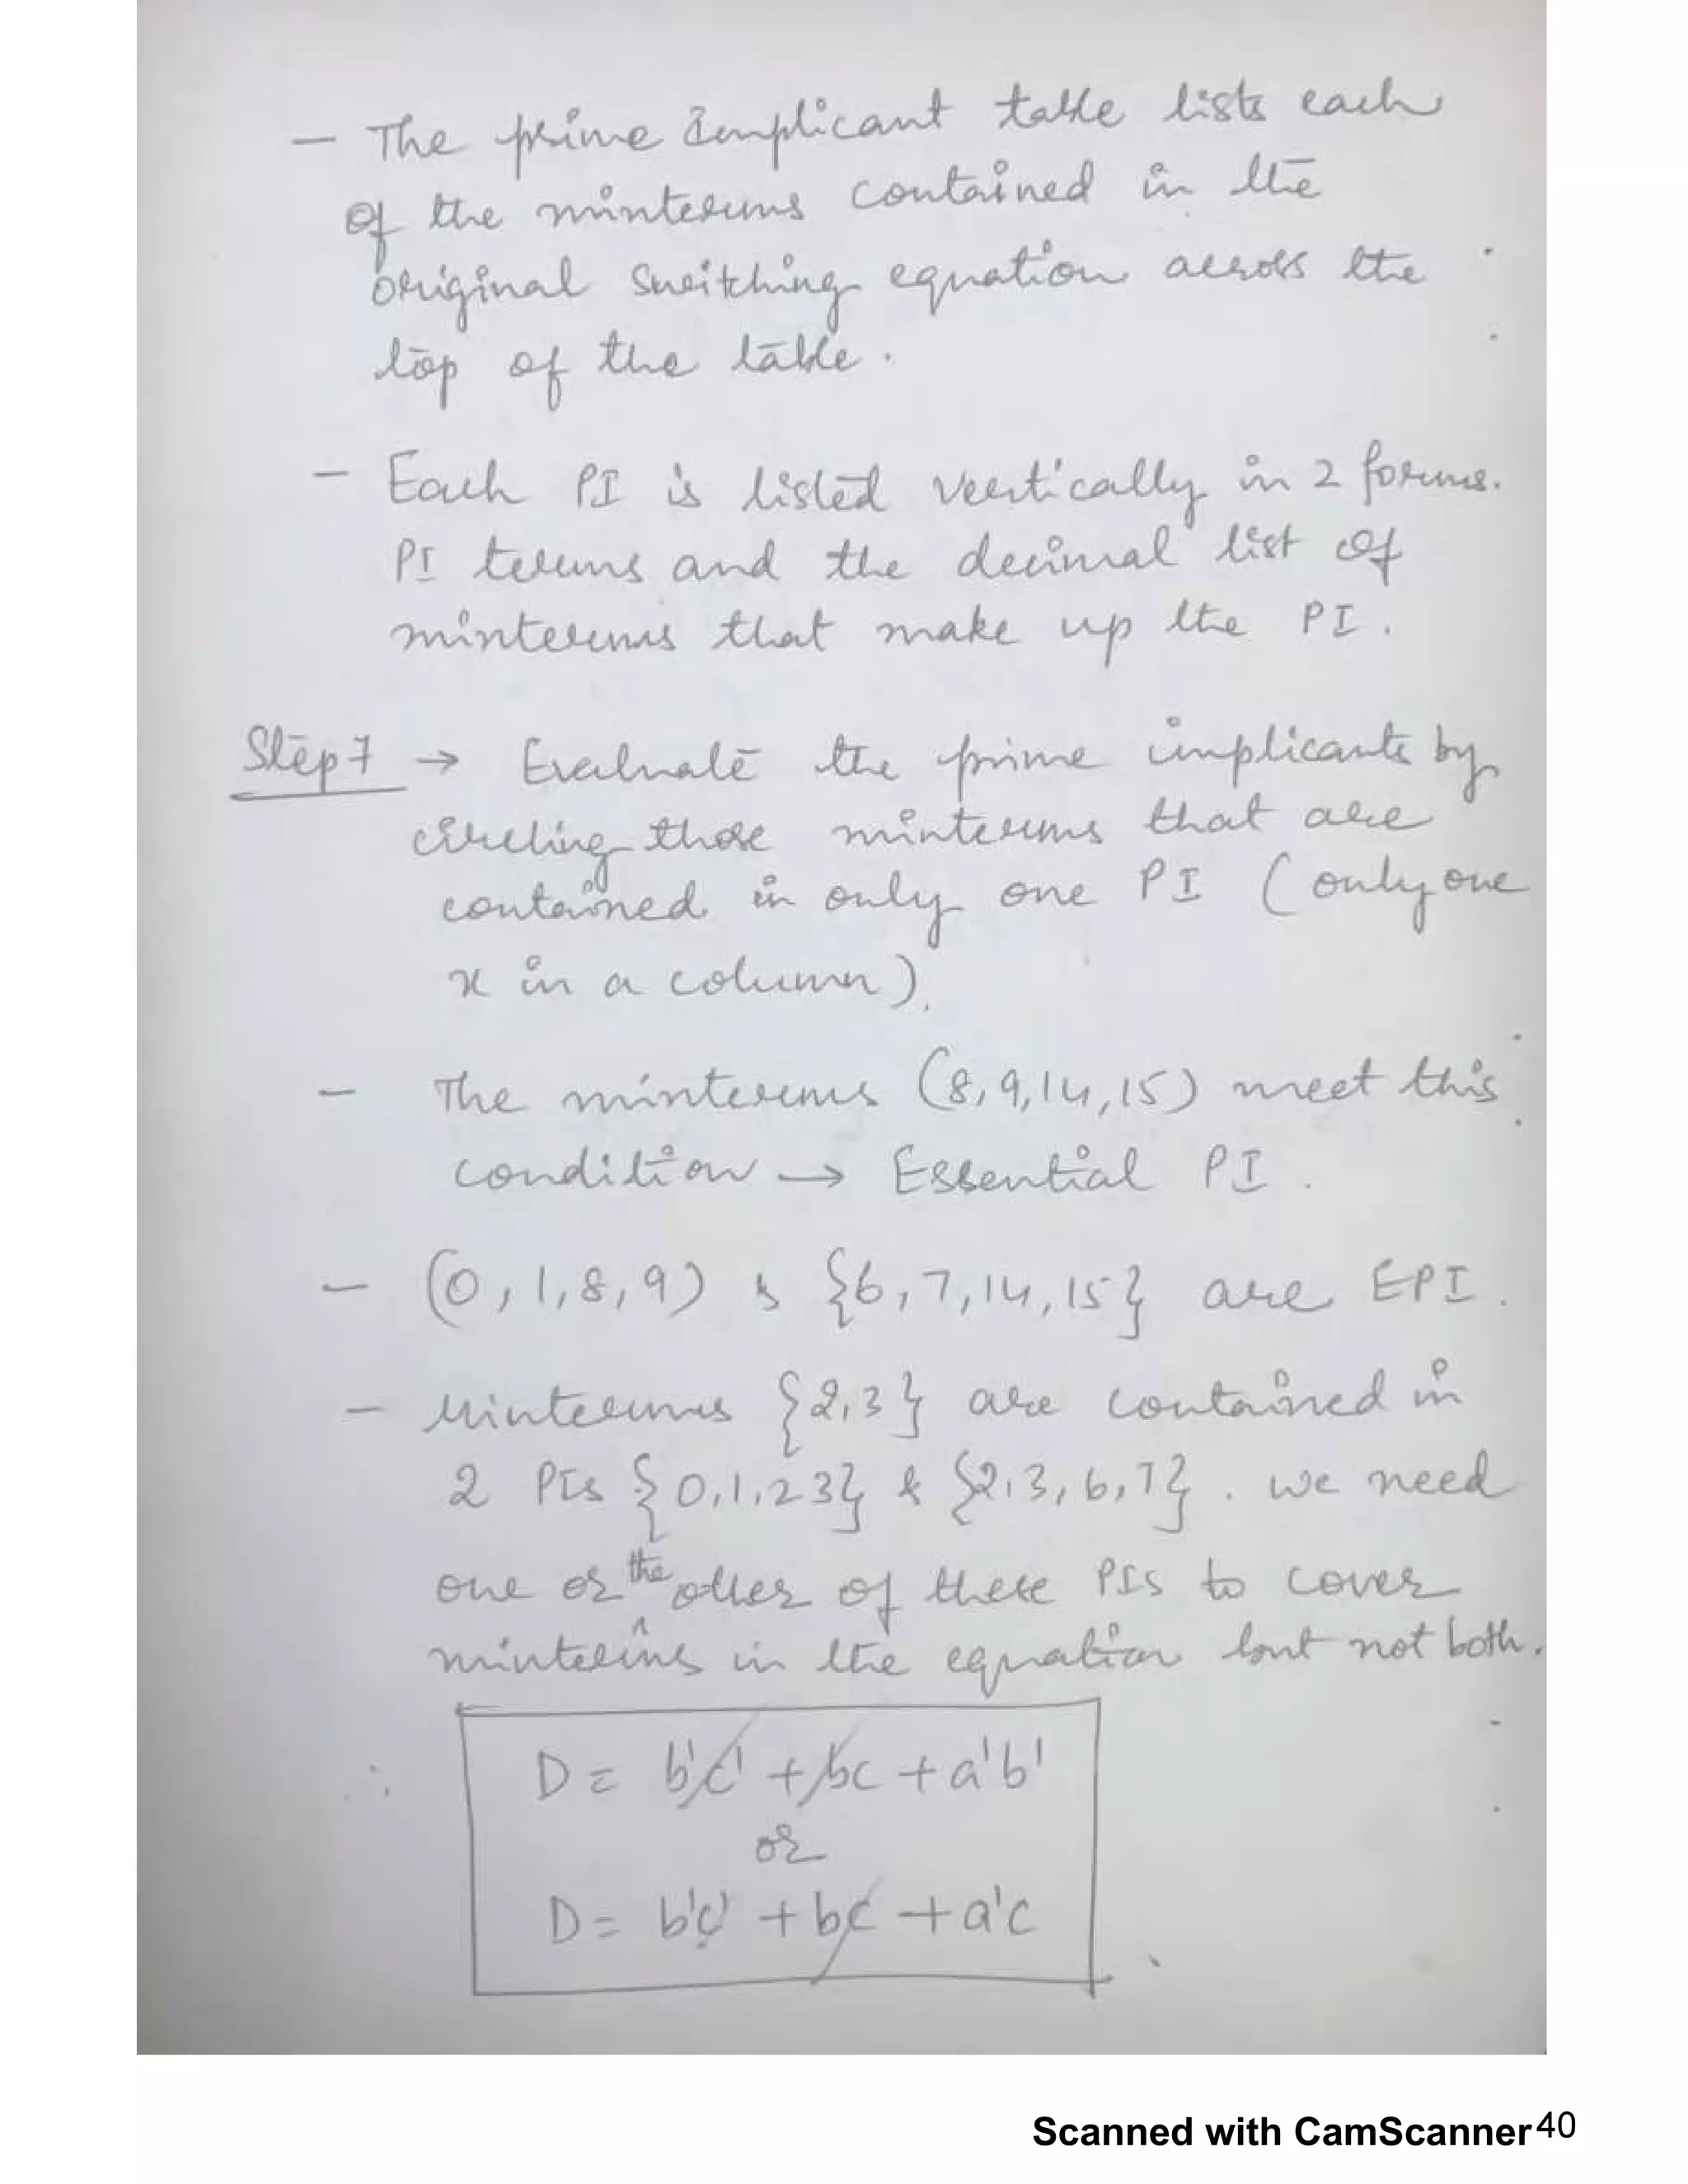 - The prime Implicant table lists each
of the minterms contained in the
original switching equation across the
top of the table.
- Each PI is listed vertically in 2 forms.
PI terms and the decimal list of
minterms that make up the PI.
Step 7 → Evaluate the prime implicants by
circling those minterms that are
contained in only one PI (only one
x in a column).
- The minterms (8,9,14,15) meet this
condition → Essential PI.
- (0,1,8,9) & {6,7,14,15} are EPI.
- Minterms {2,3} are contained in
2 PIs {0,1,2 3} & {2,3,6,7}. We need
one or the other of these PIs to cover
minterms in the equation but not both.
∴ D = b'c' + bc + a'b'
or
D = b'c' + bc + a'c
Scanned with CamScanner 40